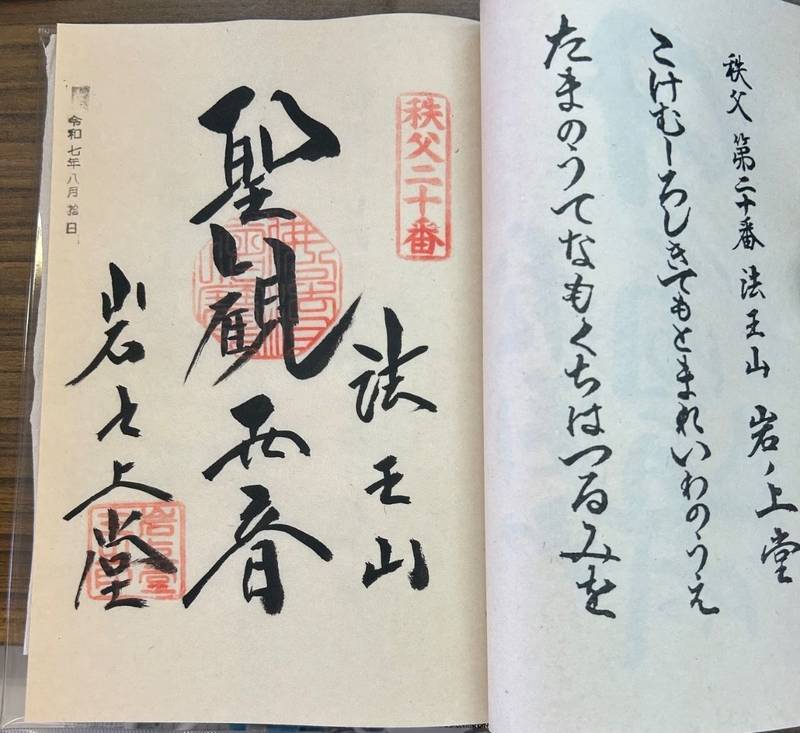 秩父 第二十番 法王山 岩ノ上堂
こけむしろしきてもとまれいわのうえ
たまのうてなもくちはつるみを
秩父二十番
法王山
聖観世音
岩之上堂
令和七年八月拾日